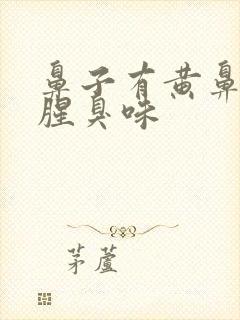 鼻子有黄鼻
腥臭味
茅蘆